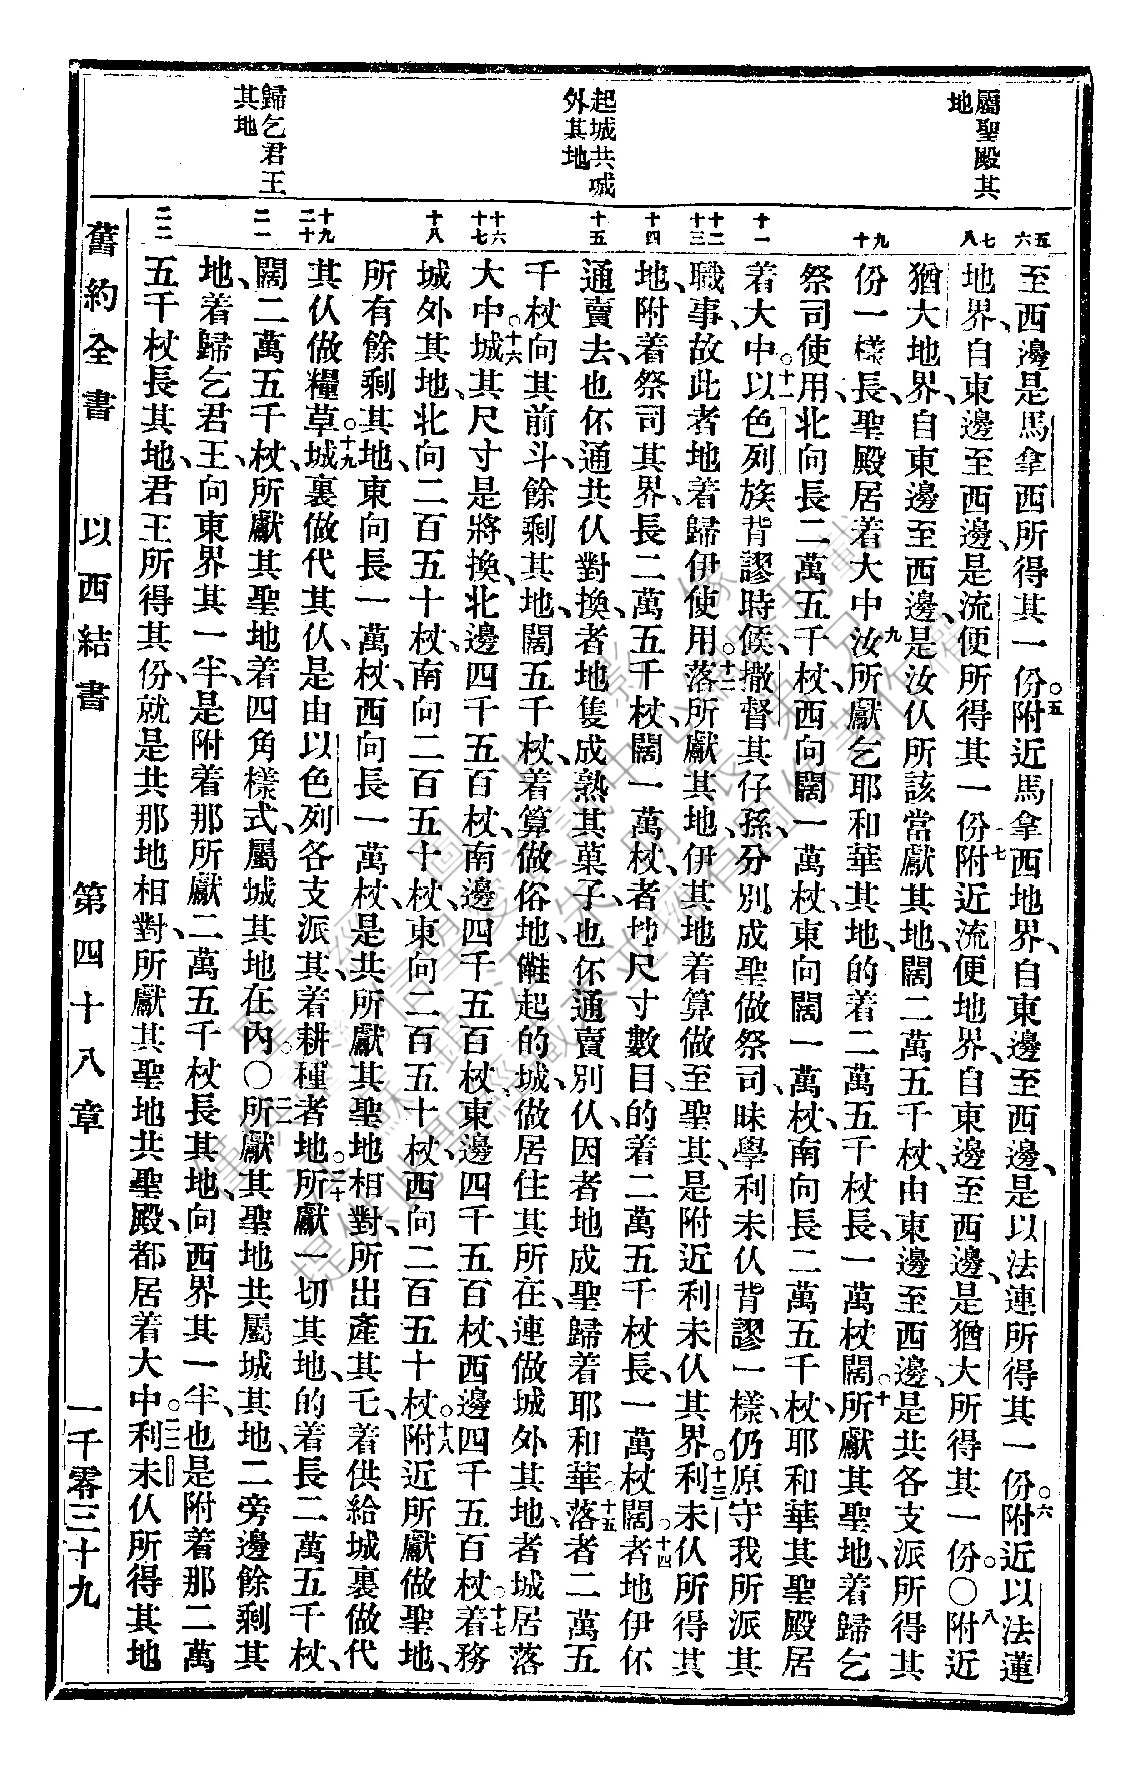 屬聖殿其
地
起城共城
外其地
歸乞君王
其地
五
六
七
八
九
十
十一
十二
十三
十四
十五
十六
十七
十八
十九
二十
二一
二二
至西邊是馬拿西所得其一份。五附近馬拿西地界、自東邊至西邊、是以法連所得其一份。六附近以法蓮
地界、自東邊至西邊、是流便所得其一份。七附近流便地界、自東邊至西邊、是猶大所得其一份。〇八附近
猶大地界、自東邊至西邊、是汝仈所該當獻其地、闊二萬五千杖、由東邊至西邊、是共各支派所得其
份一樣長、聖殿居着大中。九汝所獻乞耶和華其地、的着二萬五千杖長、一萬杖闊。十所獻其聖地、着歸乞
祭司使用、北向長二萬五千杖、西向闊一萬杖、東向闊一萬杖、南向長二萬五千杖、耶和華其聖殿居
着大中。十一以色列族背謬時候、撒督其仔孫、分別成聖做祭司、昧學利未仈背謬一樣、仍原守我所派其
職事、故此者地着歸伊使用。十二落所獻其地、伊其地着算做至聖其、是附近利未仈其界。十三利未仈所得其
地、附着祭司其界、長二萬五千杖、闊一萬杖、者地尺寸數目、的着二萬五千杖長、一萬杖闊。十四者地伊伓
通賣去、也伓通共仈對換、者地隻成熟其菓子、也伓通賣別仈、因者地成聖歸着耶和華。十五落者二萬五
千杖向其前斗、餘剩其地、闊五千杖、着算做俗地、㒁起的城、做居住其所在、連做城外其地、者城居落
大中。十六城其尺寸是將換、北邊四千五百杖、南邊四千五百杖、東邊四千五百杖、西邊四千五百杖。十七着務
城外其地、北向二百五十杖、南向二百五十杖、東向二百五十杖、西向二百五十杖。十八附近所獻做聖地、
所有餘剩其地、東向長一萬杖、西向長一萬杖、是共所獻其聖地相對、所出產其乇、着供給城裏做代
其仈做糧草。十九城裏做代其仈、是由以色列各支派其、着耕種者地。二十所獻一切其地、的着長二萬五千杖、
闊二萬五千杖、所獻其聖地、着四角樣式、屬城其地在內。〇二一所獻其聖地共屬城其地、二旁邊餘剩其
地、着歸乞君王、向東界其一半、是附着那所獻二萬五千杖長其地、向西界其一半、也是附着那二萬
五千杖長其地、君王所得其份、就是共那地相對、所獻其聖地共聖殿、都居着大中。二二利未仈所得其地
舊約全書　以西結書　第四十八章　一千零三十九